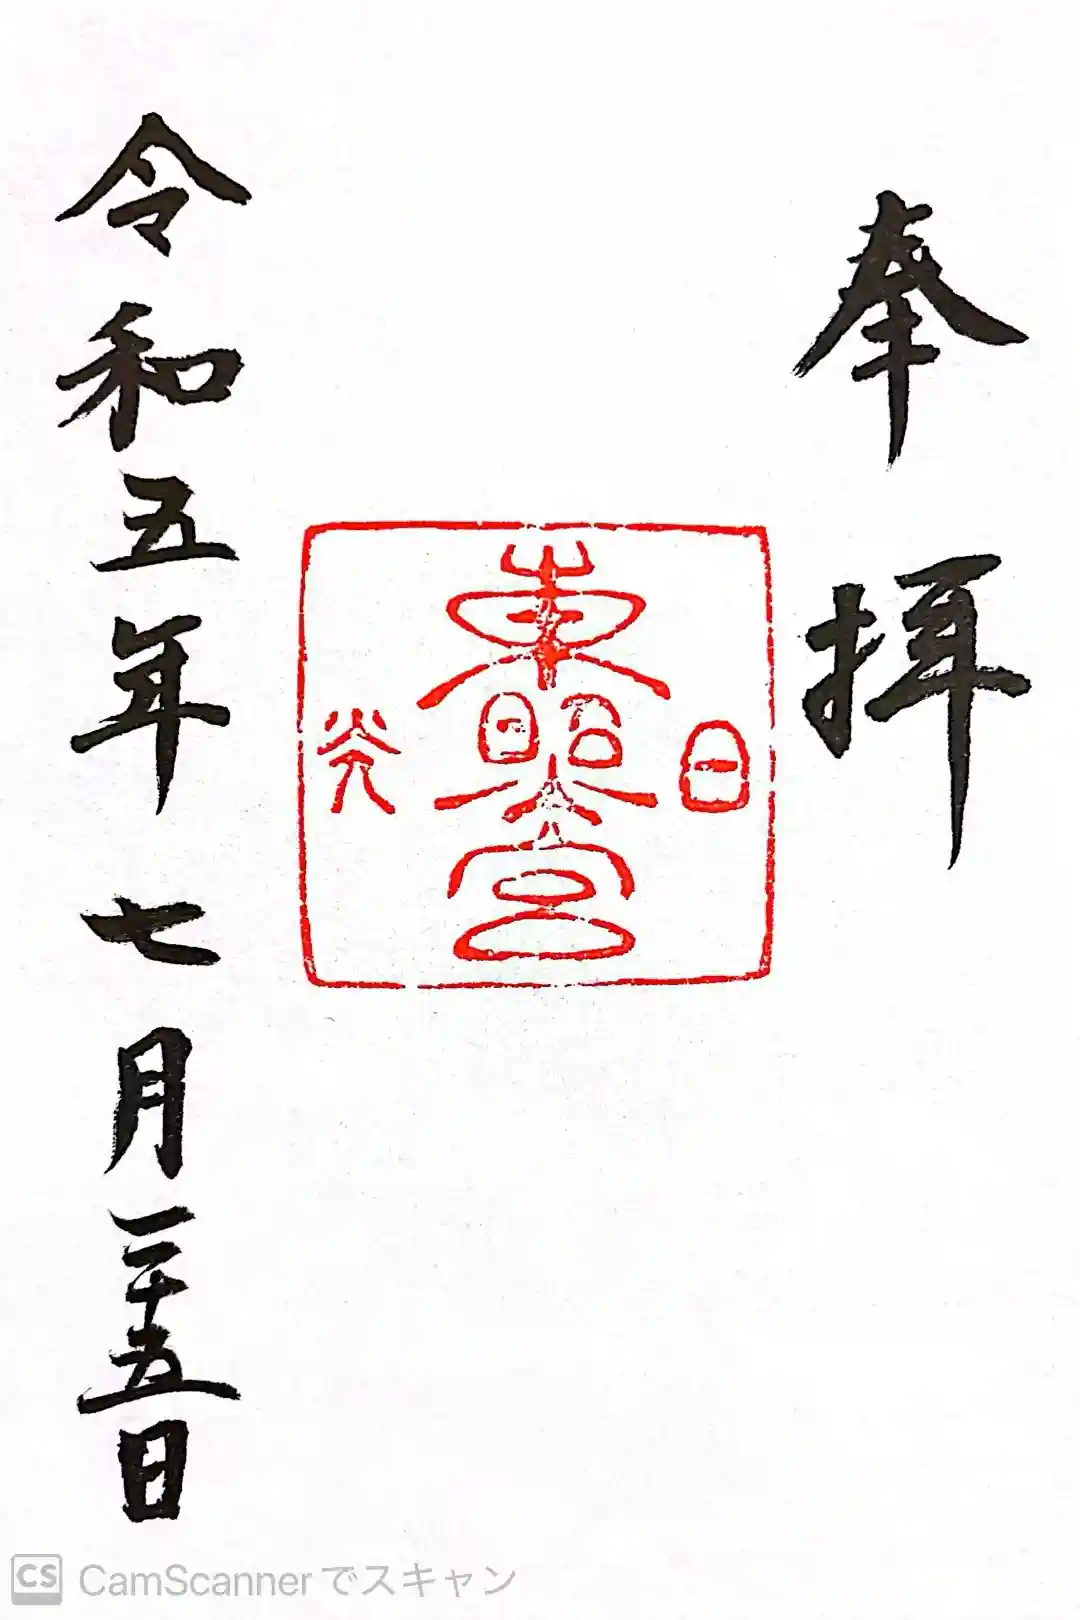 奉拝
日
東照宮
光
令和五年七月二十五日
CS CamScannerでスキャン